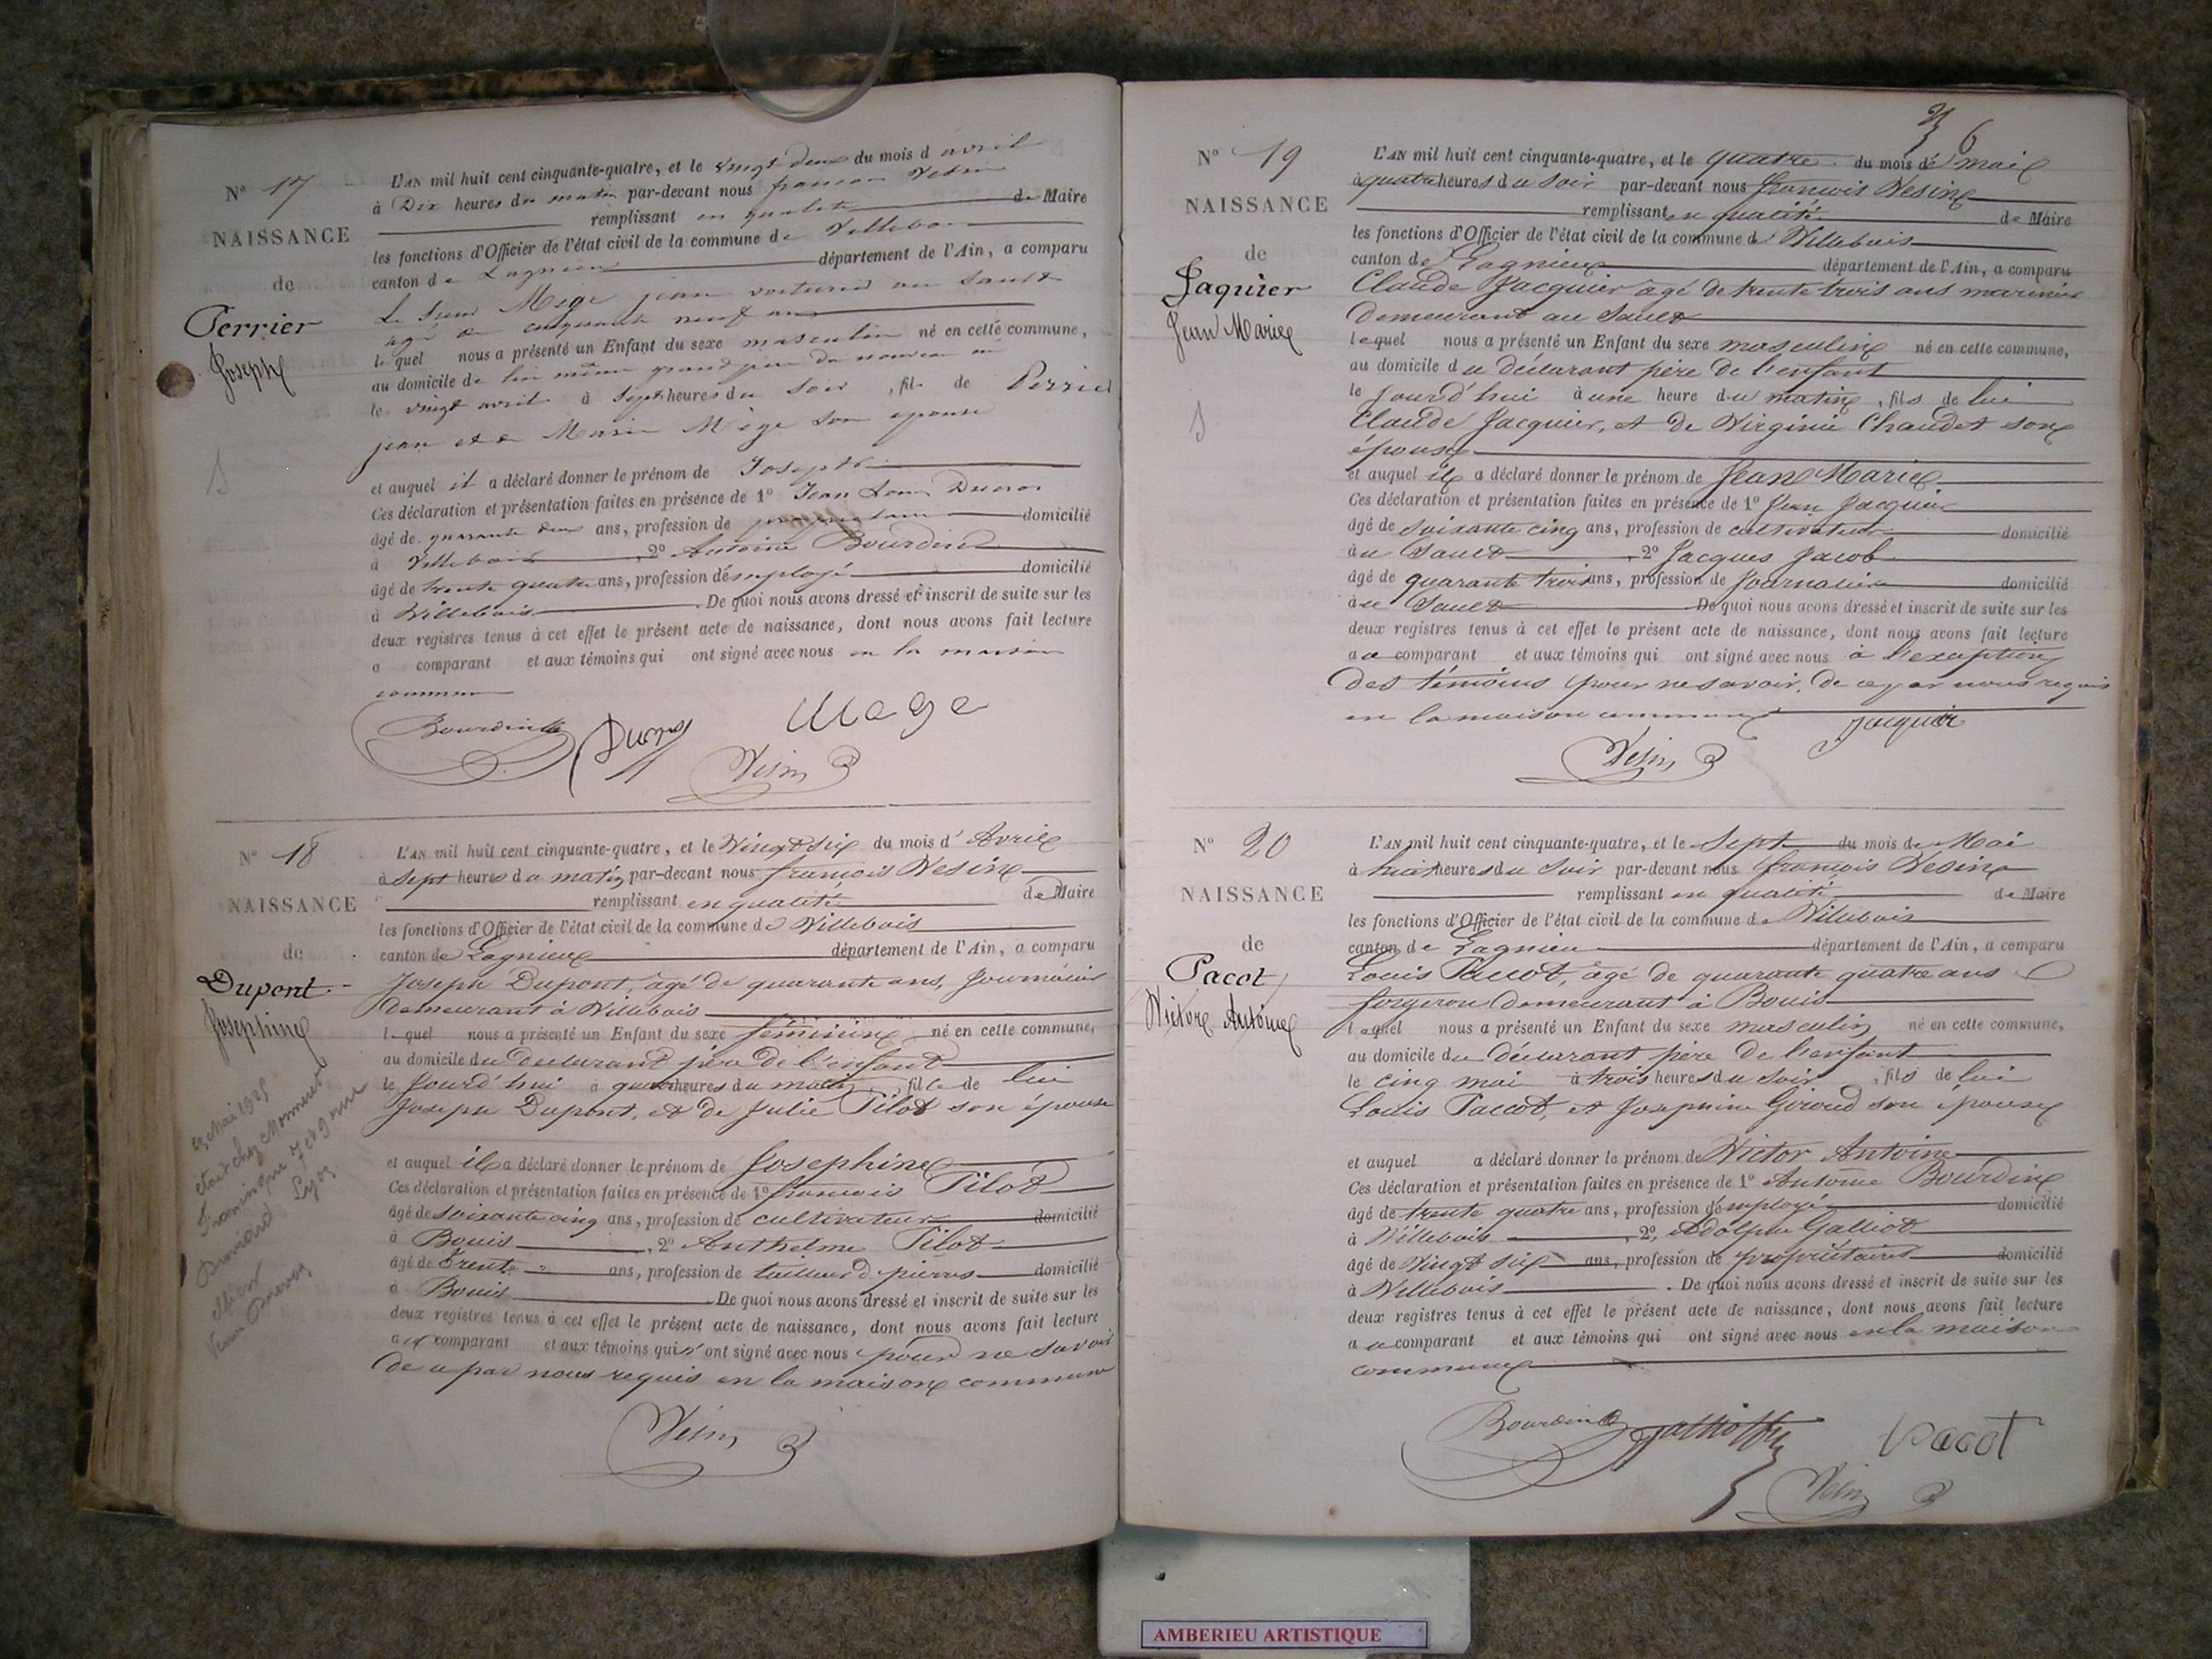 N° 17
NAISSANCE
de
Perrier
Joseph
L'AN mil huit cent cinquante-quatre, et le vingt deux du mois d avril
à Dix heures du matin par-devant nous françois Vesin
remplissant en qualité de Maire
les fonctions d'Officier de l'état civil de la commune de Villebois
canton de Lagnieu département de l'Ain, a comparu
Le sieur Mege jean voiturier au Sault
agé de cinquante neuf ans
lequel nous a présenté un Enfant du sexe masculin né en cette commune,
au domicile de lui même grand père du nouveau né
le vingt avril à sept heures du soir, fils de Perrier
jean et de Marie Mège son epouse
et auquel il a déclaré donner le prénom de Joseph
Ces déclaration et présentation faites en présence de 1° Jean Louis Ducros
âgé de quarante deux ans, profession de propriétaire domicilié
à Villebois, 2° Antoine Bourdin
âgé de trente quatre ans, profession d'employé domicilié
à Villebois. De quoi nous avons dressé et inscrit de suite sur les
deux registres tenus à cet effet le présent acte de naissance, dont nous avons fait lecture
a comparant et aux témoins qui ont signé avec nous en la maison
commune
Bourdin Mege
Vesin
N° 18
NAISSANCE
de
Dupont
Josephine
L'AN mil huit cent cinquante-quatre, et le Vingt six du mois d'Avril
à sept heures du matin par-devant nous françois Vesin
remplissant en qualité de Maire
les fonctions d'Officier de l'état civil de la commune de Villebois
canton de Lagnieu département de l'Ain, a comparu
Joseph Dupont, âgé de quarante ans, Journalier
demeurant à Villebois
lequel nous a présenté un Enfant du sexe féminin né en cette commune,
au domicile du déclarant père de l'enfant
le Jourd'hui à quatre heures du matin, fille de lui
Joseph Dupont, et de Julie Pilot son épouse
et auquel il a déclaré donner le prénom de Josephine
Ces déclaration et présentation faites en présence de 1° françois Pilot
âgé de soixante cinq ans, profession de cultivateur domicilié
à Bouis, 2° Anthelme Pilot
âgé de Trente ans, profession de tailleur d pierres domicilié
à Bouis. De quoi nous avons dressé et inscrit de suite sur les
deux registres tenus à cet effet le présent acte de naissance, dont nous avons fait lecture
au comparant et aux témoins qui n'ont signé avec nous pour ne savoir
de ce par nous requis en la maison commune
Vesin
mai 1925
était chez
Lyon
N° 19
NAISSANCE
de
Jaquier
Jean Marie
6
L'AN mil huit cent cinquante-quatre, et le quatre du mois de mai
à quatre heures du soir par-devant nous françois Vesin
remplissant en qualité de Maire
les fonctions d'Officier de l'état civil de la commune de Villebois
canton de Lagnieu département de l'Ain, a comparu
Claude Jacquier âgé de trente trois ans marinier
demeurant au Sault
lequel nous a présenté un Enfant du sexe masculin né en cette commune,
au domicile du déclarant père de l'enfant
le Jourd'hui à une heure du matin, fils de lui
Claude Jacquier, et de Virginie Chaudet son
épouse
et auquel il a déclaré donner le prénom de Jean Marie
Ces déclaration et présentation faites en présence de 1° Jean Jacquier
âgé de soixante cinq ans, profession de cultivateur domicilié
au Sault, 2° Jacques Jacob
âgé de quarante trois ans, profession de Journalier domicilié
au Sault De quoi nous avons dressé et inscrit de suite sur les
deux registres tenus à cet effet le présent acte de naissance, dont nous avons fait lecture
au comparant et aux témoins qui ont signé avec nous à l'exeption
des témoins pour ne savoir, de ce par nous requis
en la maison commune Jacquier
Vesin
N° 20
NAISSANCE
de
Pacot
Victore Antoine
L'AN mil huit cent cinquante-quatre, et le Sept du mois de Mai
à huit heures du soir par-devant nous françois Vesin
remplissant en qualité de Maire
les fonctions d'Officier de l'état civil de la commune de Villebois
canton de Lagnieu département de l'Ain, a comparu
Louis Paccot, âgé de quarante quatre ans
forgeron demeurant à Bouis
lequel nous a présenté un Enfant du sexe masculin né en cette commune,
au domicile du déclarant père de l'enfant
le cinq mai à trois heures du soir, fils de lui
Louis Paccot, et Josephine Giroud son épouse
et auquel a déclaré donner le prénom de Victor Antoine
Ces déclaration et présentation faites en présence de 1° Antoine Bourdin
âgé de trente quatre ans, profession d'employé domicilié
à Villebois, 2° Adolphe Galliot
âgé de Vingt six ans, profession de propriétaire domicilié
à Villebois. De quoi nous avons dressé et inscrit de suite sur les
deux registres tenus à cet effet le présent acte de naissance, dont nous avons fait lecture
au comparant et aux témoins qui ont signé avec nous en la maison
commune
Bourdin Pacot
Vesin
AMBERIEU ARTISTIQUE